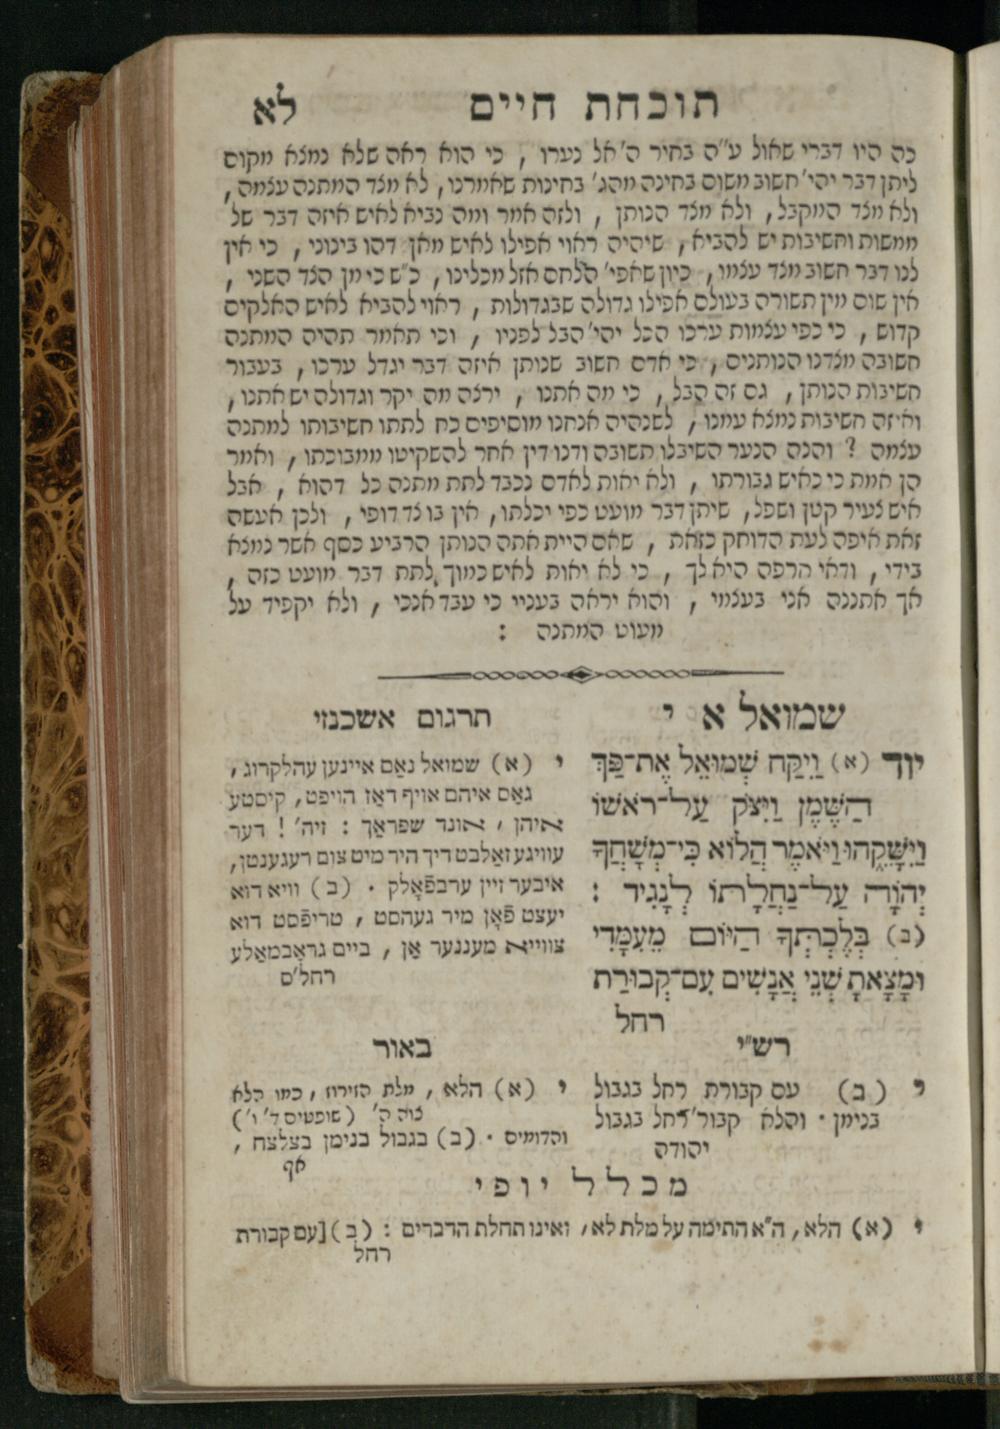 תוכחת חיים לא
כה היו דברי שאול ע״ה בחיר ה' אל נערו , כי הוא ראה שלא נמצא מקום
ליתן דבר יהי' חשוב משום בחינה מהג' בחינות שאמרנו, לא מצד המתנה עצמה,
ולא מצד המקבל, ולא מצד הנותן , ולזה אמר ומה נביא לאיש איזה דבר של
ממשות וחשיבות יש להביא, שיהיה ראוי אפילו לאיש מאן דהו בינוני, כי אין
לנו דבר חשוב מצד עצמו, כיון שאפי' הלחם אזל מכלינו, כ״ש כי מן הצד השני ,
אין שום מין תשורה בעולם אפילו גדולה שבגדולות , ראוי להביא לאיש האלקים
קדוש , כי כפי עצמות ערכו הכל יהי' הבל לפניו , וכי תאמר תהיה המתנה
חשובה מצדנו הנותנים, כי אדם חשוב שנותן איזה דבר יגדל ערכו, בעבור
חשיבות הנותן, גם זה הבל, כי מה אתנו , ירצה מה יקר וגדולה יש אתנו,
ואיזה חשיבות נמצא עמנו, לשנהיה אנחנו מוסיפים כח לתתו חשיבותו למתנה
עצמה ? והנה הנער השיבלו תשובה ודנו דין אחר להשקיטו ממבוכתו, ואמר
הן אמת כי כאיש גבורתו , ולא יאות לאדם נכבד לתת מתנה כל דהוא , אבל
איש צעיר קטן ושפל, שיתן דבר מועט כפי יכלתו, אין בו צד דופי, ולכן אעשה
זאת איפה לעת הדוחק כזאת , שאם היית אתה הנותן הרביע כסף אשר נמצא
בידי, ודאי הרפה היא לך , כי לא יאות לאיש כמוך לתת דבר מועט כזה ,
אך אתננה אני בעצמי , והוא יראה בעניי כי עבד אנכי , ולא יקפיד על
מעוט המתנה :
שמואל א י
יוד (א) וַיִּקַּח שְׁמוּאֵל אֶת־פַּךְ
הַשֶּׁמֶן וַיִּצֹק עַל־רֹאשׁוֹ
וַיִּשָּׁקֵהוּ וַיֹּאמֶר הֲלוֹא כִּי־מְשָׁחֲךָ
יְהוָֹה עַל־נַחֲלָתוֹ לְנָגִיד :
(ב) בְּלֶכְתְּךָ הַיּוֹם מֵעִמָּדִי
וּמָצָאתָ שְׁנֵי אֲנָשִׁים עִם־קְבוּרַת
רחל
תרגום אשכנזי
י (א) שמואל נאַם איינען עהלקרוג,
גאָס איהם אויף דאָז הויפט, קיסטע
איהן , אונד שפראַך : זיה' ! דער
עוויגע זאַלבט דיך היר מיט צום רעגענטן,
איבער זיין ערבפֿאָלק . (ב) וויא דוא
יעצט פֿאָן מיר געהסט , טריפֿסט דוא
צווייא מעננער אַן , ביים גראַבמאַלע
רחל'ס
רש״י
י (ב) עם קבורת רחל בגבול
בנימן . והלא קבור' רחל בגבול
יהודה
באור
י (א) הלא , מלת הזירוז, כמו הלא
צוה ה' (שופטים ד' ו')
והדומים . (ב) בגבול בנימן בצלצח ,
אף
מכלל יופי
י (א) הלא, ה״א התימה על מלת לא, ואינו תחלת הדברים : (ב) [עם קבורת
רחל